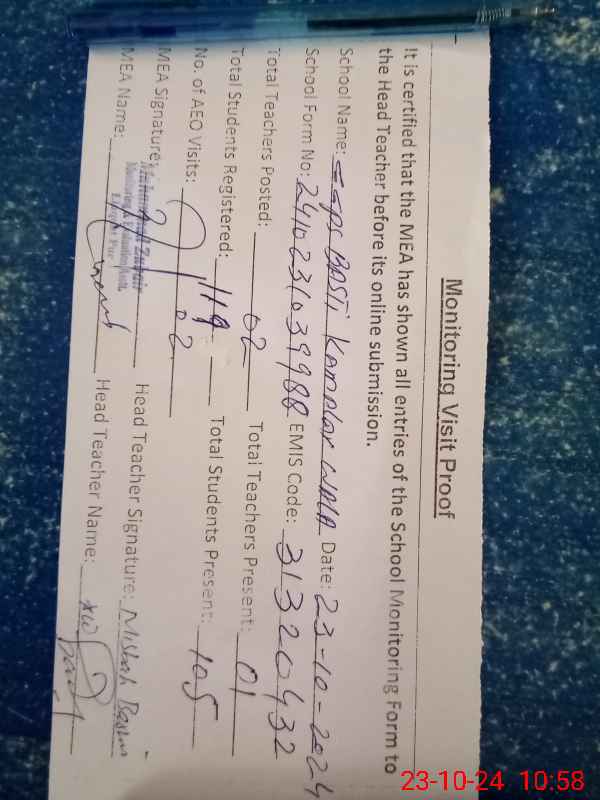 Monitoring Visit Proof
It is certified that the MEA has shown all entries of the School Monitoring Form to
the Head Teacher before its online submission.
School Name: GGPS BASTi Kanplar WALA Date: 23-10-2024
School Form No: 24102310 EMIS Code: 31320432
Total Teachers Posted: 02 Total Teachers Present: 01
Total Students Registered: 119 Total Students Present: 105
No. of AEO Visits: 02
MEA Signature: Head Teacher Signature: Misbah
Muhammad Zubair
Monitoring & Evaluation Asstt.
MEA Name: Head Teacher Name:
23-10-24 10:58